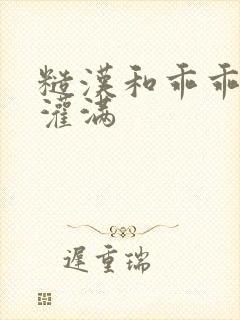 糙漢和乖乖
灌滿
遲重瑞